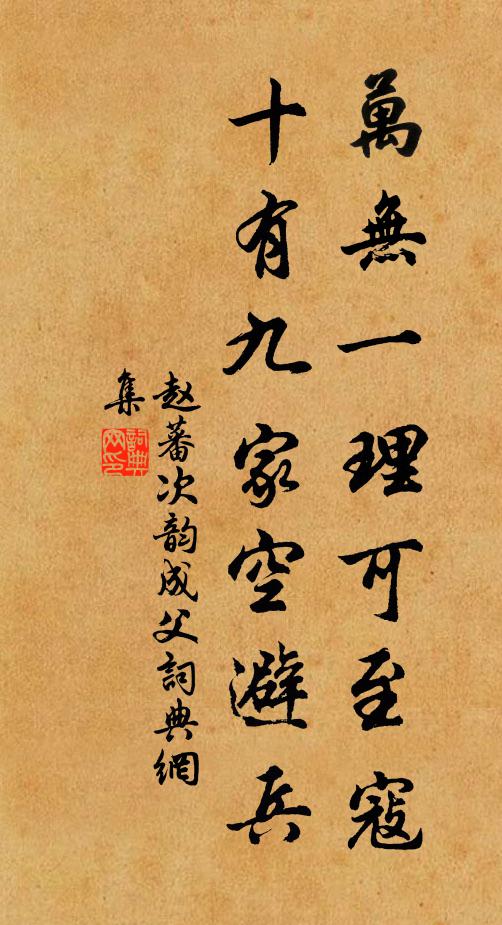 萬無一理可至寇
十有九家空避兵
赵蕃次韵成父詞典網
集
詞典網印